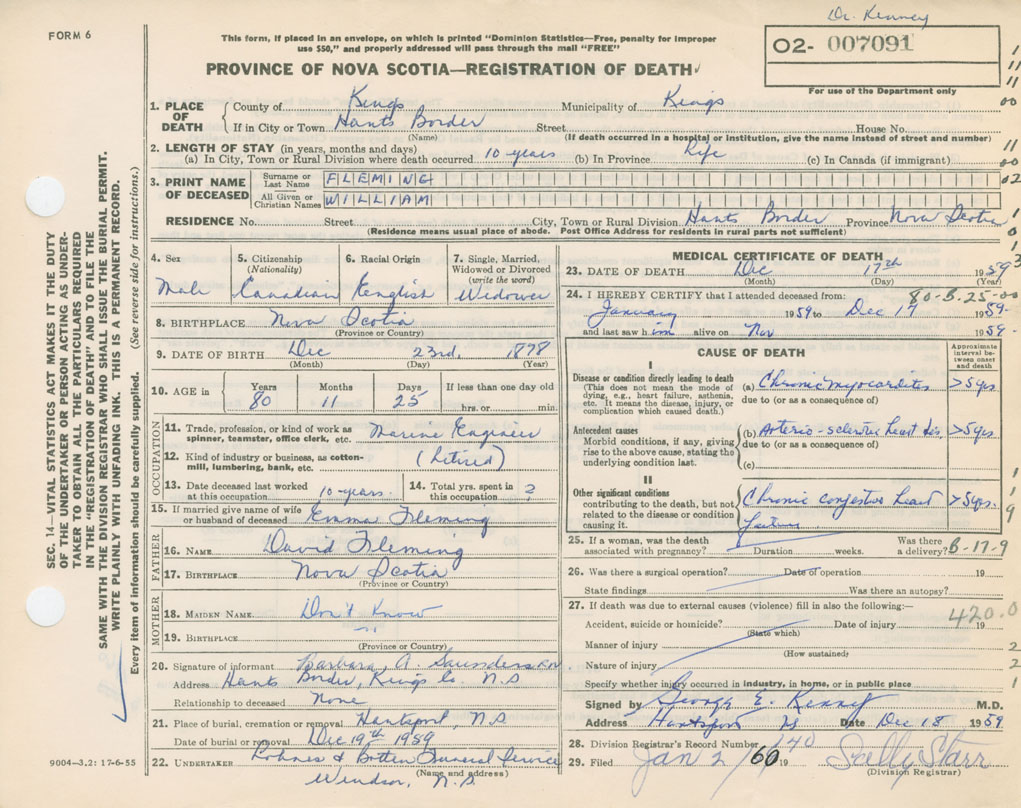 Dr. Kenney
FORM 6
This form, if placed in an envelope, on which is printed "Dominion Statistics—Free, penalty for improper
use $50," and properly addressed will pass through the mail "FREE"
O2- 007091
For use of the Department only
PROVINCE OF NOVA SCOTIA—REGISTRATION OF DEATH
SEC. 14—VITAL STATISTICS ACT MAKES IT THE DUTY
OF THE UNDERTAKER OR PERSON ACTING AS UNDER-
TAKER TO OBTAIN ALL THE PARTICULARS REQUIRED
IN THE "REGISTRATION OF DEATH" AND TO FILE THE
SAME WITH THE DIVISION REGISTRAR WHO SHALL ISSUE THE BURIAL PERMIT.
WRITE PLAINLY WITH UNFADING INK. THIS IS A PERMANENT RECORD.
Every item of information should be carefully supplied. (See reverse side for instructions.)
1. PLACE OF DEATH County of Kings Municipality of Kings
If in City or Town Hants Border Street House No.
(Name) (If death occurred in a hospital or institution, give the name instead of street and number)
2. LENGTH OF STAY (in years, months and days)
(a) In City, Town or Rural Division where death occurred 10 years (b) In Province Life (c) In Canada (if immigrant)
3. PRINT NAME OF DECEASED Surname or Last Name FLEMING
All Given or Christian Names WILLIAM
RESIDENCE No. Street City, Town or Rural Division Hants Border Province Nova Scotia
(Residence means usual place of abode. Post Office Address for residents in rural parts not sufficient)
4. Sex Male
5. Citizenship (Nationality) Canadian
6. Racial Origin English
7. Single, Married, Widowed or Divorced (write the word) Widower
8. BIRTHPLACE Nova Scotia
(Province or Country)
9. DATE OF BIRTH Dec 23rd, 1878
(Month) (Day) (Year)
10. AGE in Years 80 Months 11 Days 25 If less than one day old hrs. or min.
OCCUPATION
11. Trade, profession, or kind of work as spinner, teamster, office clerk, etc. Marine Engineer
12. Kind of industry or business, as cotton-mill, lumbering, bank, etc. (Retired)
13. Date deceased last worked at this occupation 10 years
14. Total yrs. spent in this occupation ?
15. If married give name of wife or husband of deceased Emma Fleming
FATHER
16. NAME David Fleming
17. BIRTHPLACE Nova Scotia
(Province or Country)
MOTHER
18. MAIDEN NAME Don't Know
19. BIRTHPLACE "
(Province or Country)
20. Signature of informant Barbara A. Saunders R.N.
Address Hants Border, Kings Co. N.S
Relationship to deceased None
21. Place of burial, cremation or removal Hantsport, N.S
Date of burial or removal Dec 19th 1959
22. UNDERTAKER Rohnes & Botten Funeral Service
(Name and address)
Windsor, N.S.
9004—3.2: 17-6-55
MEDICAL CERTIFICATE OF DEATH
23. DATE OF DEATH Dec 17th 1959
(Month) (Day) (Year)
24. I HEREBY CERTIFY that I attended deceased from: 80-B.25-00
January 1959 to Dec 17 1959
and last saw him alive on Nov 1959
CAUSE OF DEATH
Approximate interval between onset and death
I
Disease or condition directly leading to death
(This does not mean the mode of dying, e.g., heart failure, asthenia, etc. It means the disease, injury, or complication which caused death.)
(a) Chronic myocarditis > 5 yrs
due to (or as a consequence of)
Antecedent causes
Morbid conditions, if any, giving rise to the above cause, stating the underlying condition last.
(b) Arterio-sclerotic heart dis. > 5 yrs
due to (or as a consequence of)
(c)
II
Other significant conditions
contributing to the death, but not related to the disease or condition causing it.
Chronic congestive heart failure > 5 yrs.
25. If a woman, was the death associated with pregnancy? Duration weeks. Was there a delivery? B-17-9
26. Was there a surgical operation? Date of operation 19
State findings Was there an autopsy?
27. If death was due to external causes (violence) fill in also the following:— 420.0
Accident, suicide or homicide? Date of injury 19
(State which)
Manner of injury
(How sustained)
Nature of injury
Specify whether injury occurred in industry, in home, or in public place
Signed by George E. Kenney M.D.
Address Hantsport NS Date Dec 18 1959
28. Division Registrar's Record Number 140
29. Filed Jan 2 / 60 19 Sally Starr
(Division Registrar)